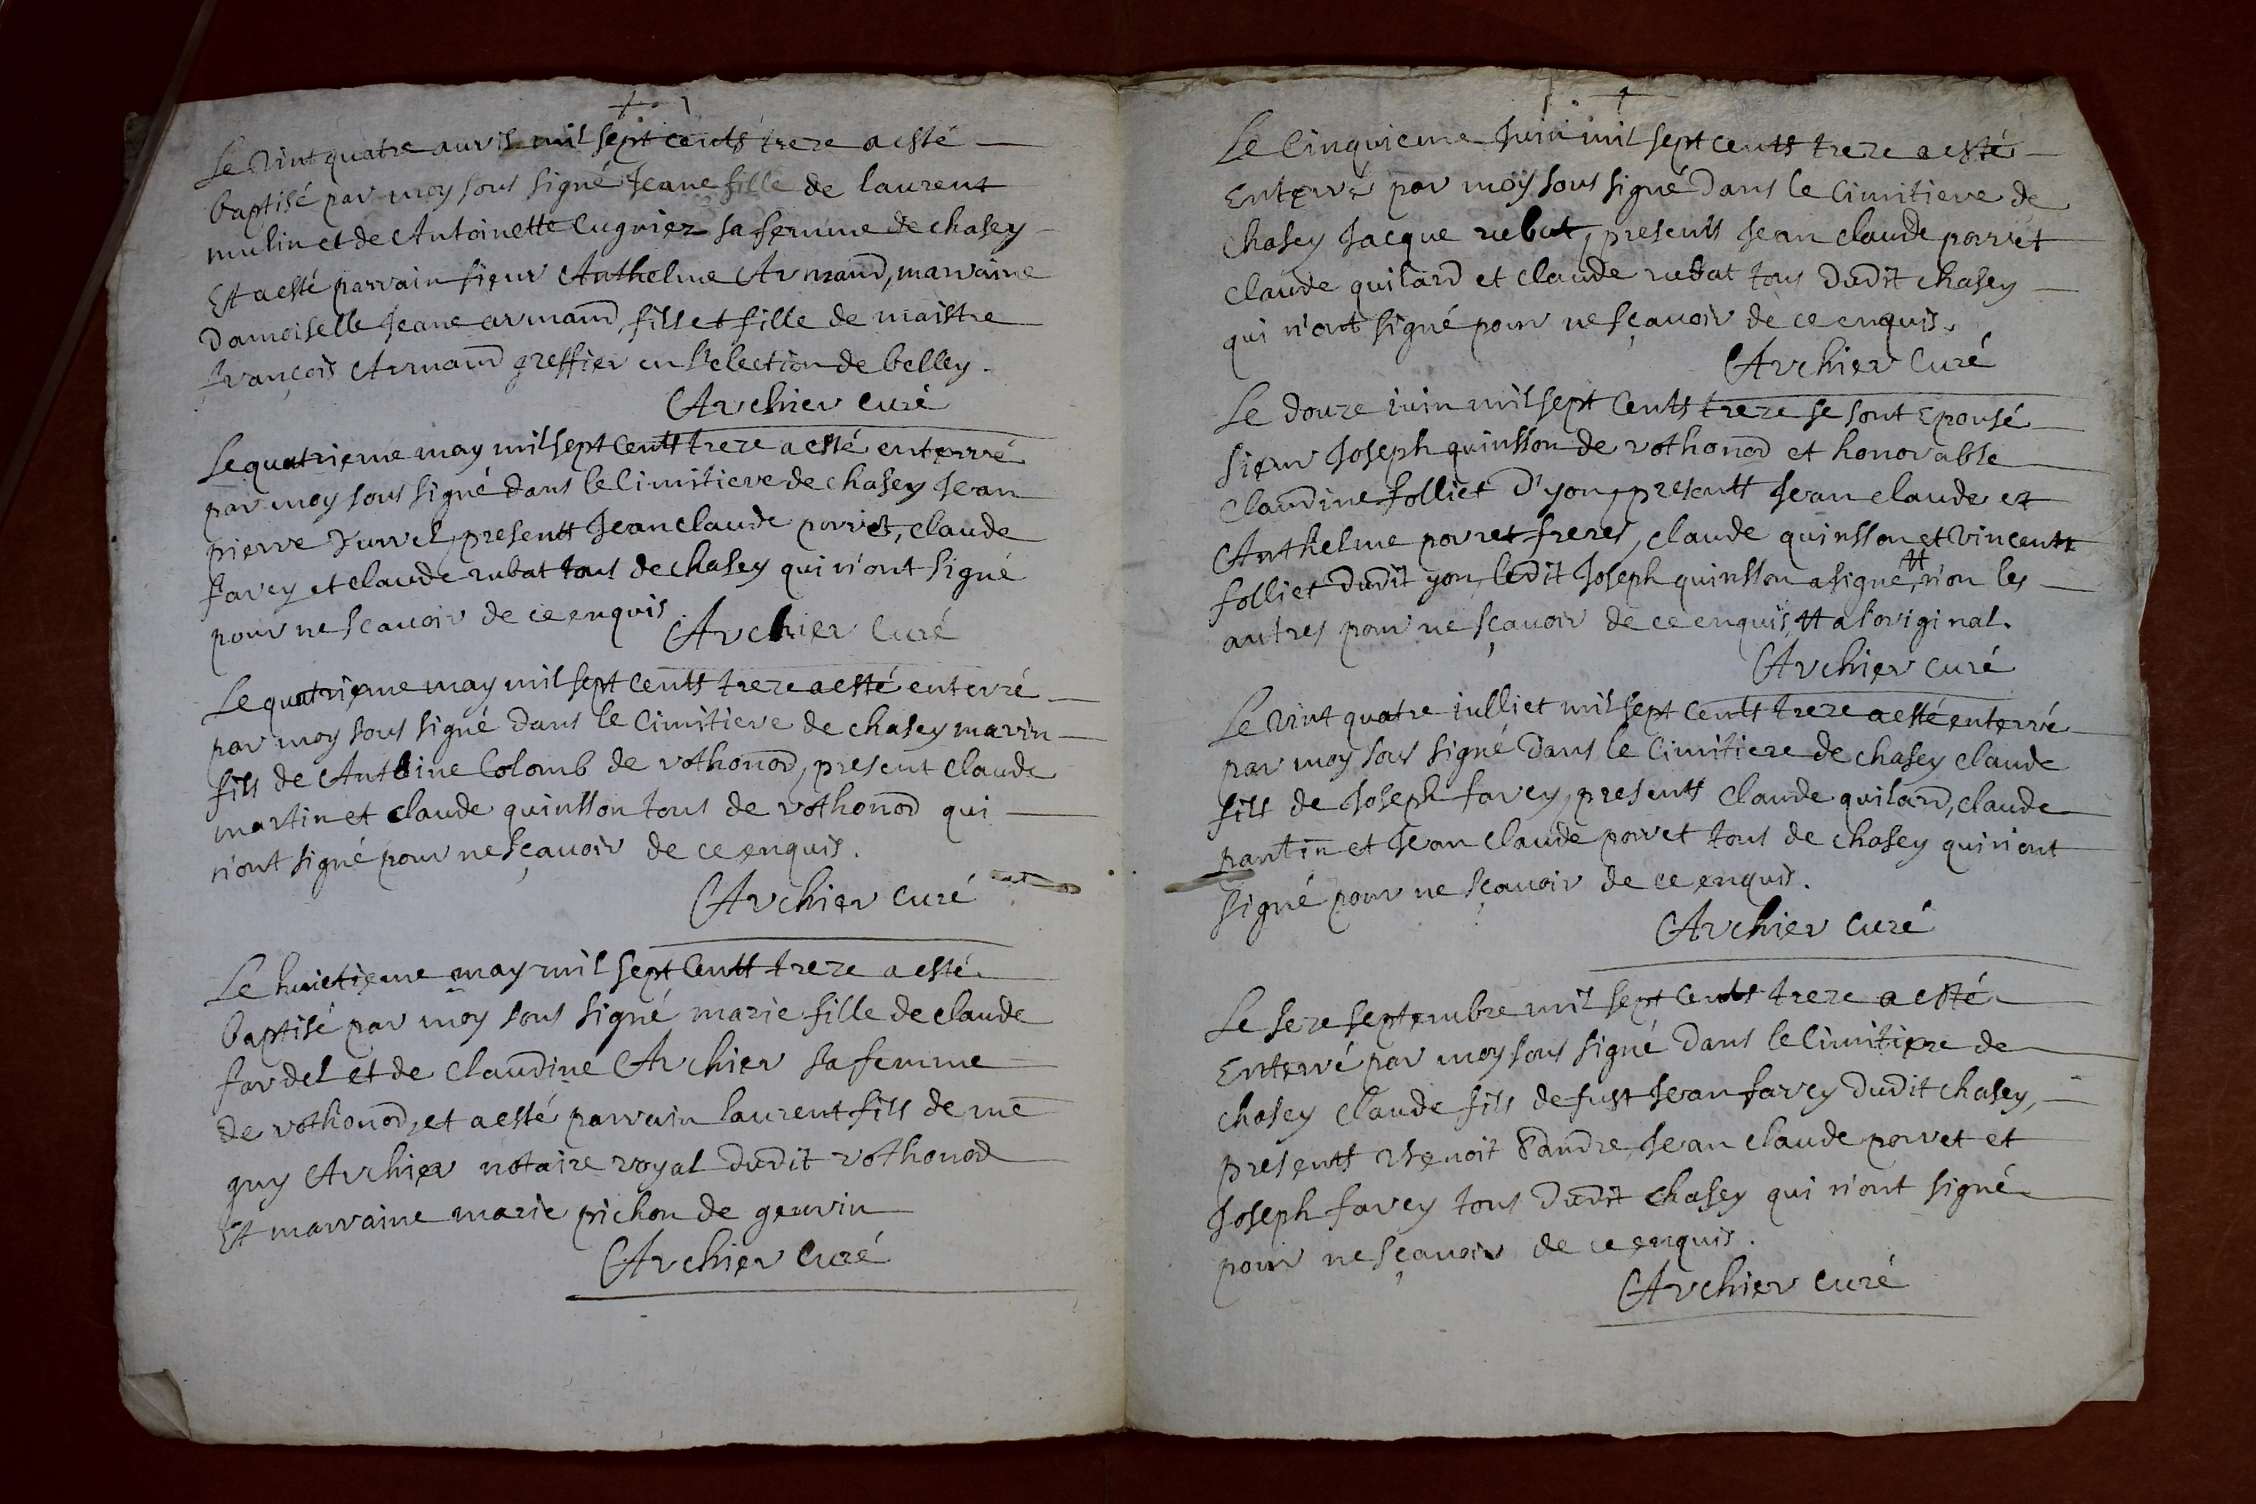 Le vint quatre auvril mil sept cents treze a esté
baptisé par moy sous signé Jeane fille de laurent
mulin et de Antoinette Cugniez sa femme de chasey
Et a esté parrain sieur Anthelme Armand, marraine
Damoiselle Jeane armand, fils et fille de maistre
françois Armand greffier en l'election de belley.
Archier curé
Le quatrieme may mil sept cents treze a esté enterré
par moy sous signé dans le Cimitiere de chasey Jean
pierre Jurrel, presents Jean claude porret, claude
favey et claude rubat tous de chasey qui n'ont signé
pour ne sçavoir de ce enquis
Archier Curé
Le quatrieme may mil sept cents treze a esté enterré
par moy sous signé dans le Cimitiere de chasey marin
fils de Antoine Colomb de vothonod, present claude
martin et claude quinsson tous de vothonod qui
n'ont signé pour ne sçavoir de ce enquis.
Archier curé
Le huictieme may mil sept Cents treze a esté
baptisé par moy sous signé marie fille de claude
fardel et de claudine Archier sa femme
de vothonod, et a esté parrain laurent fils de me
guy Archier notaire royal dudit vothonod
Et marraine marie pichon de geuvin
Archier curé
Le Cinquieme Juin mil sept cents treze a esté
Enterré par moy sous signé Dans le Cimitiere de
chasey Jacque rubat, presents Jean claude porret
claude quilard et claude rubat tous dudit chasey
qui n'ont signé pour ne sçavoir de ce enquis.
Archier Curé
Le douze iuin mil sept Cents treze se sont Epousé
sieur Joseph quinsson de vothonod et honorable
claudine folliet D'yon, presents Jean claude et
Anthelme porret freres, claude quinsson et vincent
folliet dudit yon, ledit Joseph quinsson a signé, # non les
autres pour ne sçavoir de ce enquis, # a l'original.
Archier curé
Le vint quatre iulliet mil sept Cents treze a esté enterré
par moy sous signé dans le Cimitiere de chasey claude
fils de Joseph favey, presents claude quilard, claude
pantin et Jean claude porret tous de chasey qui n'ont
signé pour ne sçavoir de ce enquis.
Archier curé
Le seze septembre mil sept Cents treze a esté
Enterré par moy sous signé dans le Cimitiere de
chasey claude fils de fust Jean favey dudit chasey,
presents Jean claude porret et
Joseph favey tous dudit chasey qui n'ont signé
pour ne sçavoir de ce enquis.
Archier curé